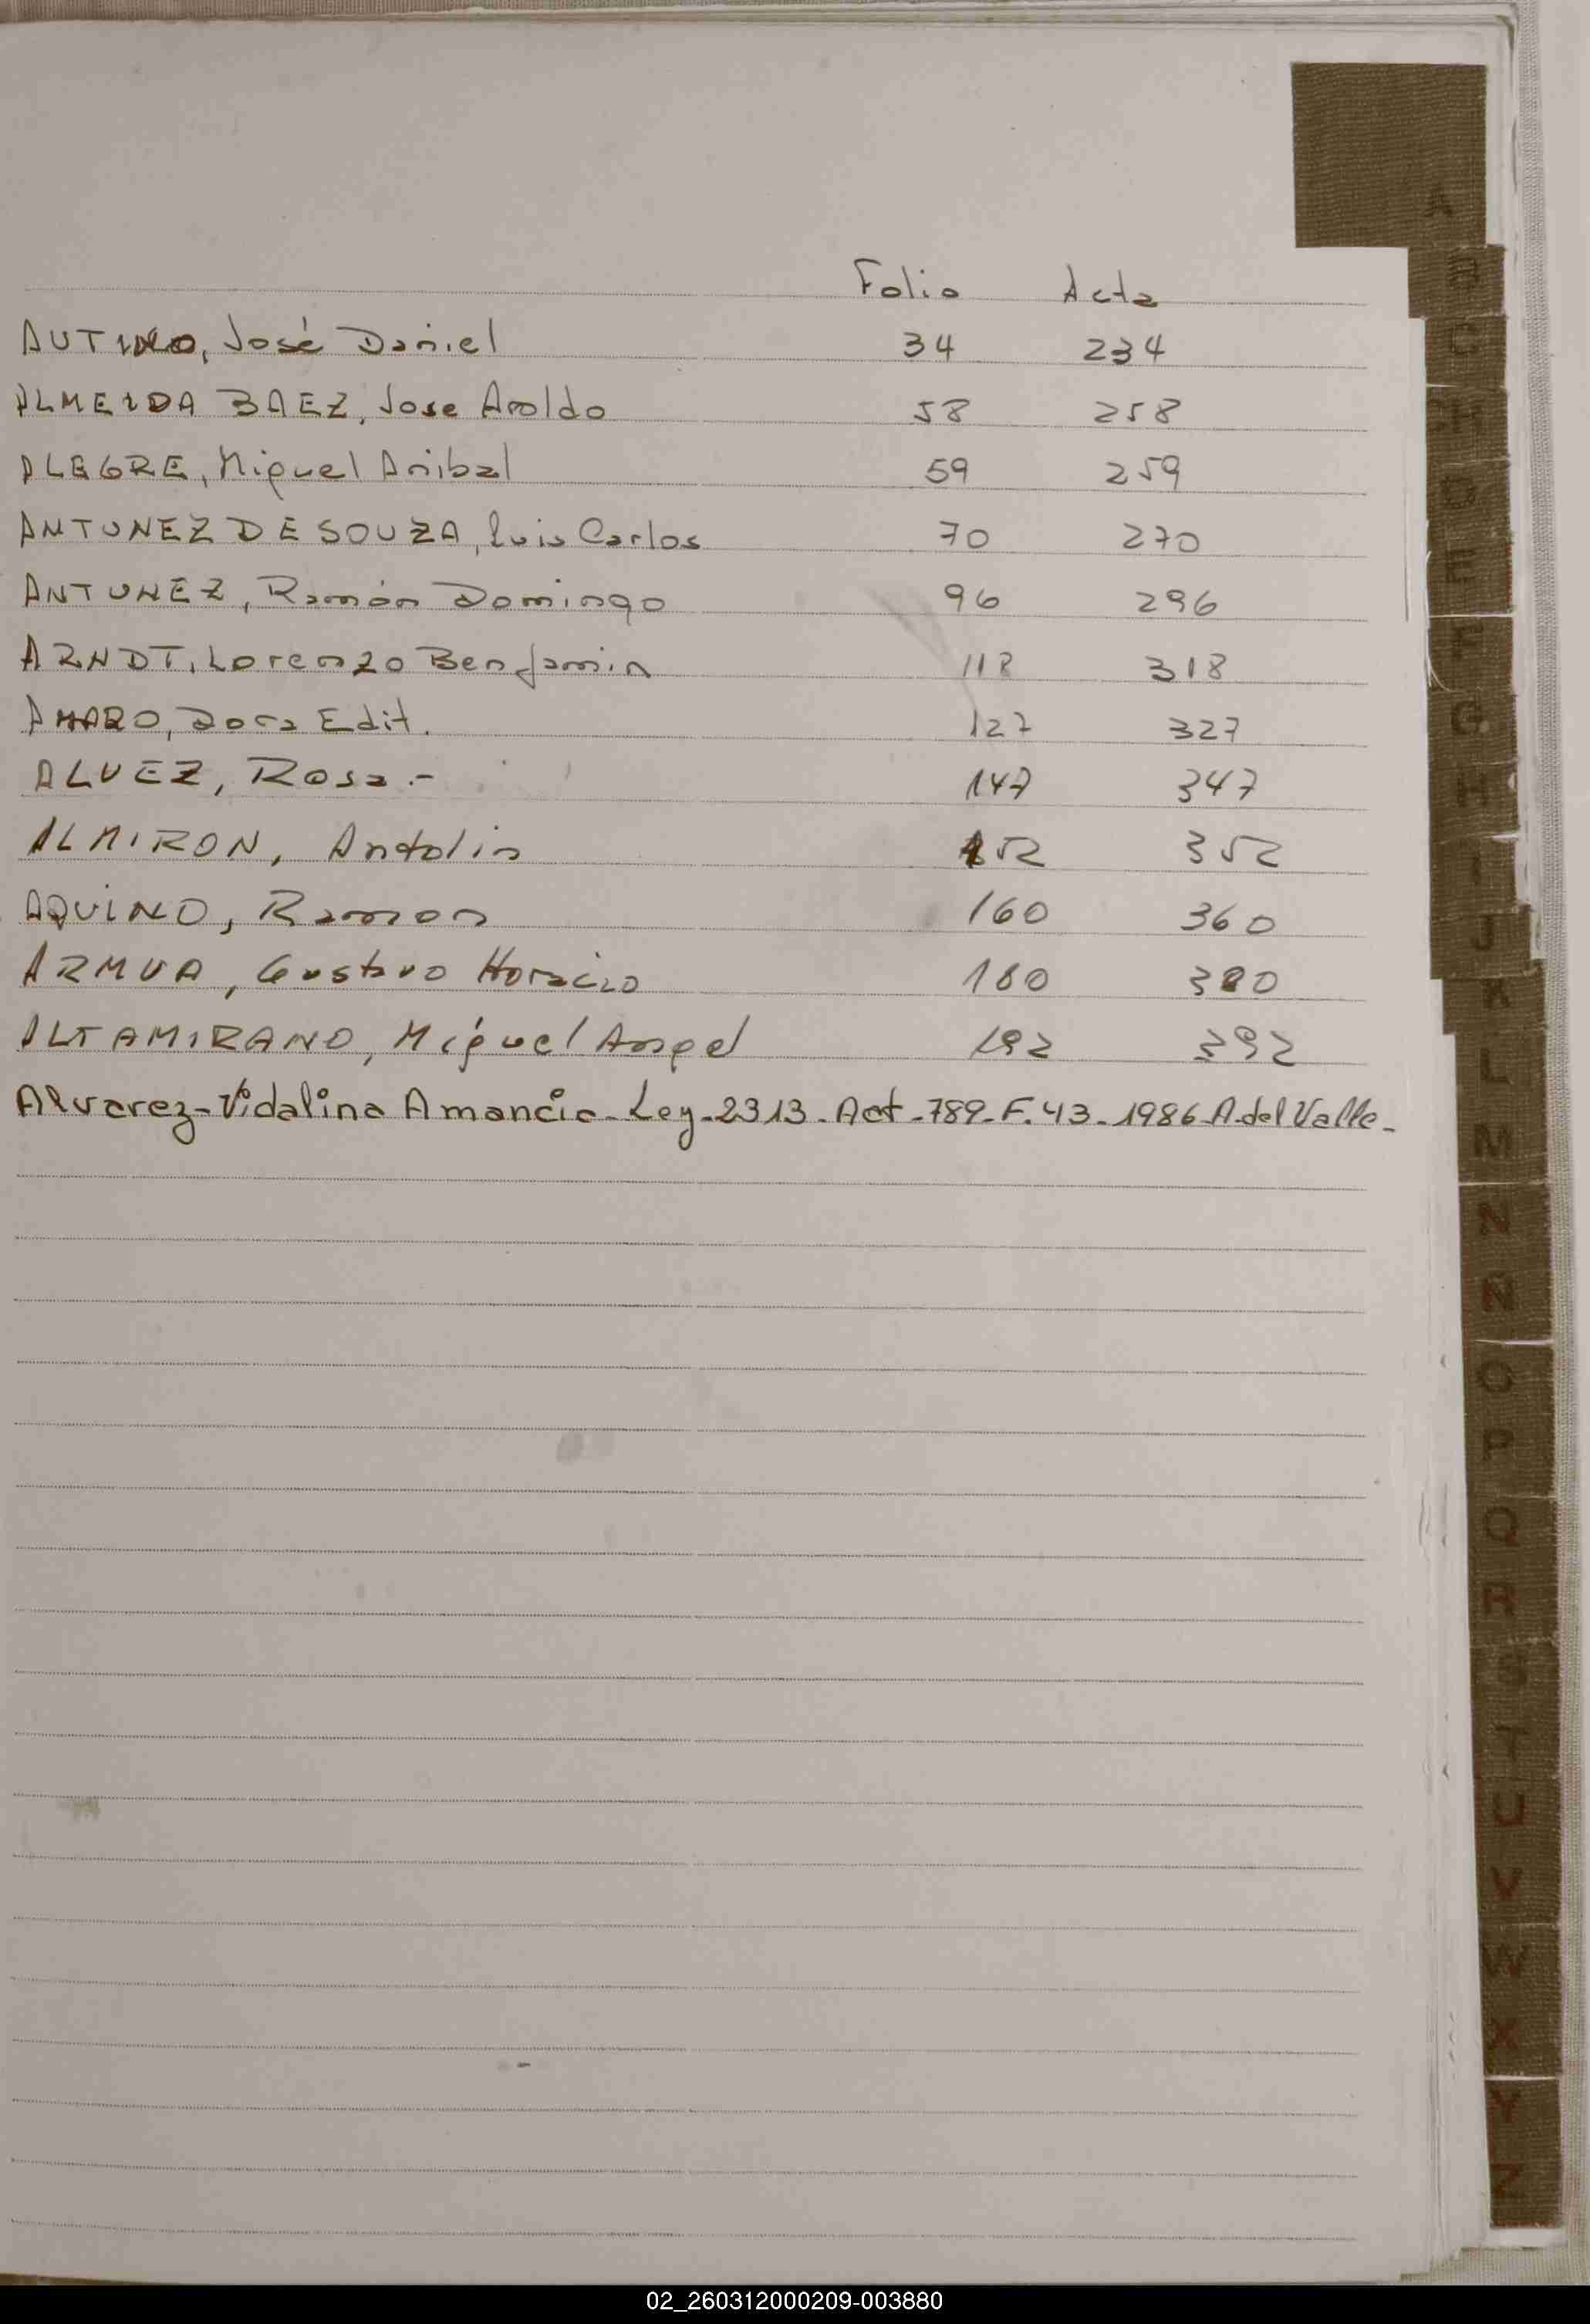 Folio Acta
AUTINO, José Daniel 34 234
ALMEIDA BAEZ, Jose Aroldo 58 258
ALEGRE, Miguel Anibal 59 259
ANTUNEZ DE SOUZA, Luis Carlos 70 270
ANTUNEZ, Ramón Domingo 96 296
ARNDT, Lorenzo Benjamin 118 318
AMARO, Dora Edit. 127 327
ALVEZ, Rosa.- 147 347
ALMIRON, Antolin 152 352
AQUINO, Ramon 160 360
ARMUA, Gustavo Horacio 180 380
ALTAMIRANO, Miguel Angel 192 392
Alvarez-Vidalina Amancia-Ley-2313-Act-789-F.43-1986-A.del Valle-
A
B
C
CH
D
E
F
G
H
I
J
K
L
M
N
Ñ
O
P
Q
R
S
T
U
V
W
X
Y
Z
02_260312000209-003880